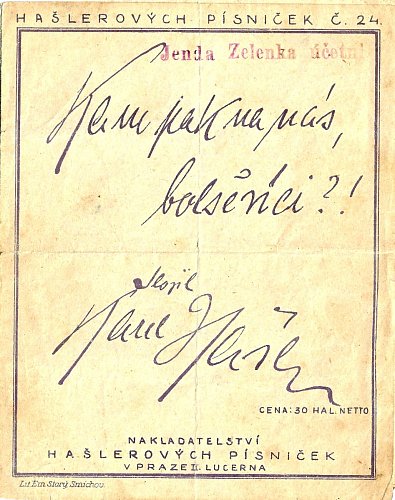 HAŠLEROVÝCH PÍSNIČEK Č. 24.
Jenda Zelenka účetní
Kam pak na nás,
bolševíci?!
složil
Karel Hašler
CENA: 30 HAL. NETTO
NAKLADATELSTVÍ
HAŠLEROVÝCH PÍSNIČEK
V PRAZE II. LUCERNA
Lit. Em. Starý, Smíchov.